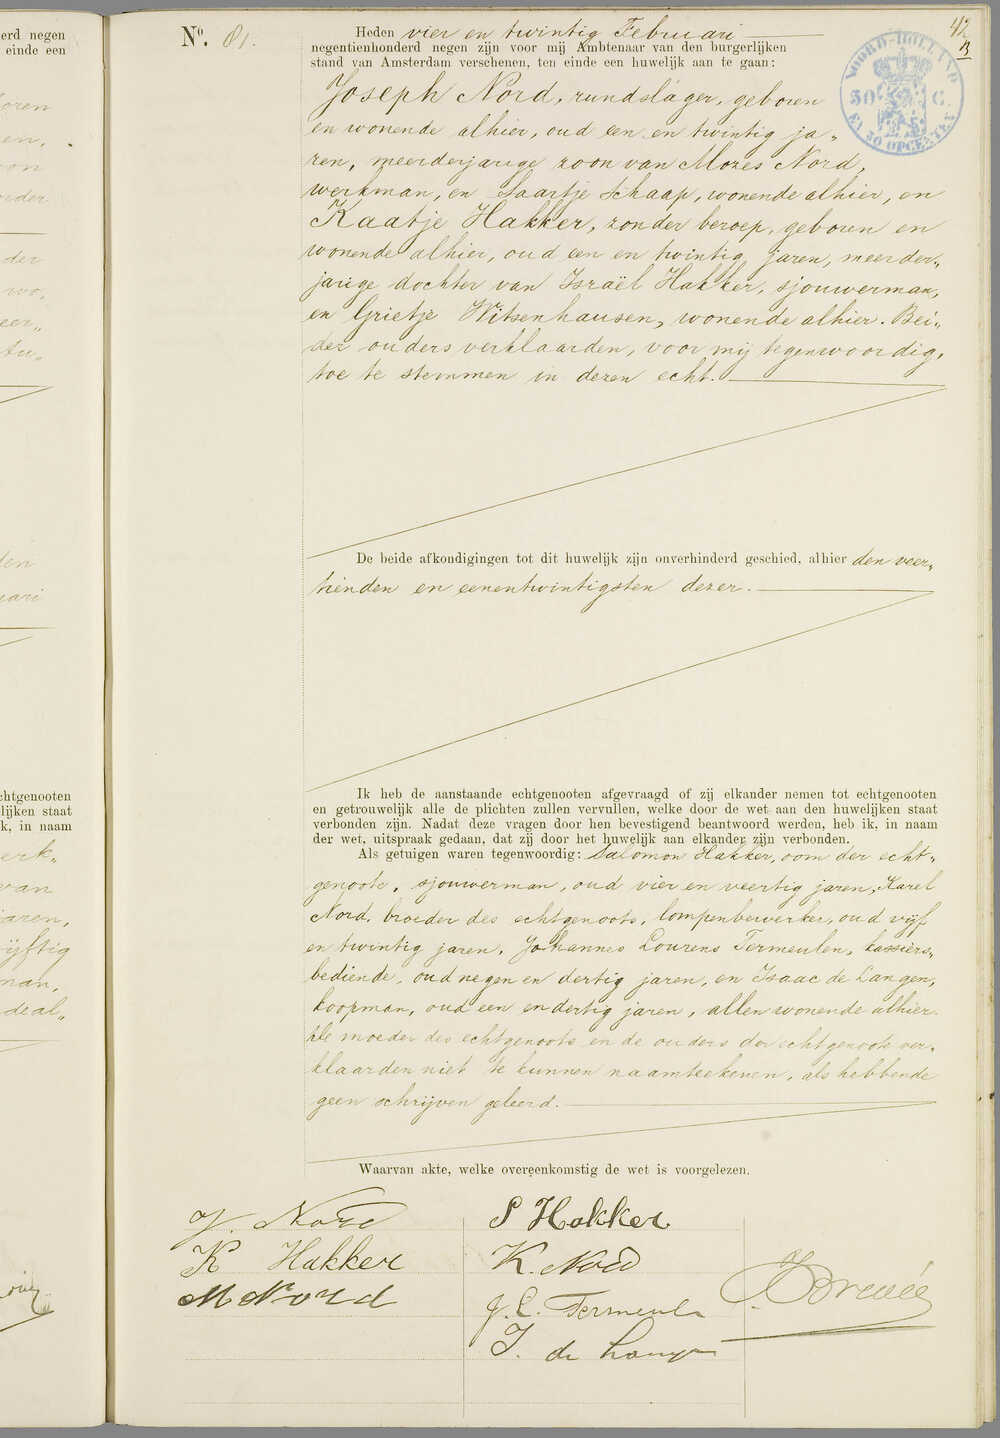 42
B
NOORD-HOLLAND
50 C.
EN 30 OPCENTEN
No. 81.
Heden vier en twintig Februari
negentienhonderd negen zijn voor mij Ambtenaar van den burgerlijken
stand van Amsterdam verschenen, ten einde een huwelijk aan te gaan:
Joseph Nord, rundslager, geboren
en wonende alhier, oud een en twintig ja„
ren, meerderjarige zoon van Mozes Nord,
werkman, en Saartje Schaap, wonende alhier, en
Kaatje Hakker, zonder beroep, geboren en
wonende alhier, oud een en twintig jaren, meerder„
jarige dochter van Israël Hakker, sjouwerman,
en Grietje Witsenhausen, wonende alhier. Bei„
der ouders verklaarden, voor mij tegenwoordig,
toe te stemmen in dezen echt.
De beide afkondigingen tot dit huwelijk zijn onverhinderd geschied, alhier den veer„
tienden en eenentwintigsten dezer.
Ik heb de aanstaande echtgenooten afgevraagd of zij elkander nemen tot echtgenooten
en getrouwelijk alle de plichten zullen vervullen, welke door de wet aan den huwelijken staat
verbonden zijn. Nadat deze vragen door hen bevestigend beantwoord werden, heb ik, in naam
der wet, uitspraak gedaan, dat zij door het huwelijk aan elkander zijn verbonden.
Als getuigen waren tegenwoordig: Salomon Hakker, oom der echt„
genoote, sjouwerman, oud vier en veertig jaren, Karel
Nord, broeder des echtgenoots, lompenbewerker, oud vijf
en twintig jaren, Johannes Lourens Termeulen, kassiers„
bediende, oud negen en dertig jaren, en Isaac de Langen,
koopman, oud een en dertig jaren, allen wonende alhier.
De moeder des echtgenoots en de ouders der echtgenoote ver„
klaarden niet te kunnen naamteekenen, als hebbende
geen schrijven geleerd.
Waarvan akte, welke overeenkomstig de wet is voorgelezen.
J. Nord
K Hakker
M Nord
S Hakker
K. Nord
J. L. Termeulen
I. de Langen